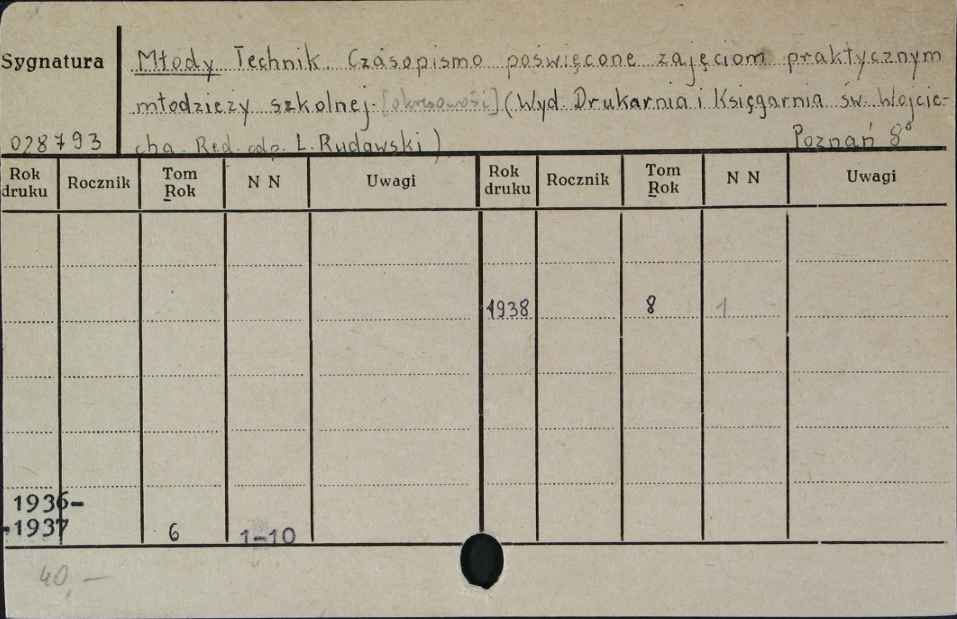 Sygnatura
Młody Technik. Czasopismo poświęcone zajęciom praktycznym
młodzieży szkolnej. [okresowość] (Wyd. Drukarnia i Księgarnia św. Wojcie-
028793 cha. Red. odp. L. Rudawski) Poznań 8°
Rok druku Rocznik Tom Rok N N Uwagi Rok druku Rocznik Tom Rok N N Uwagi
1938 8 1
1936-
-1937 6 1-10
40,—